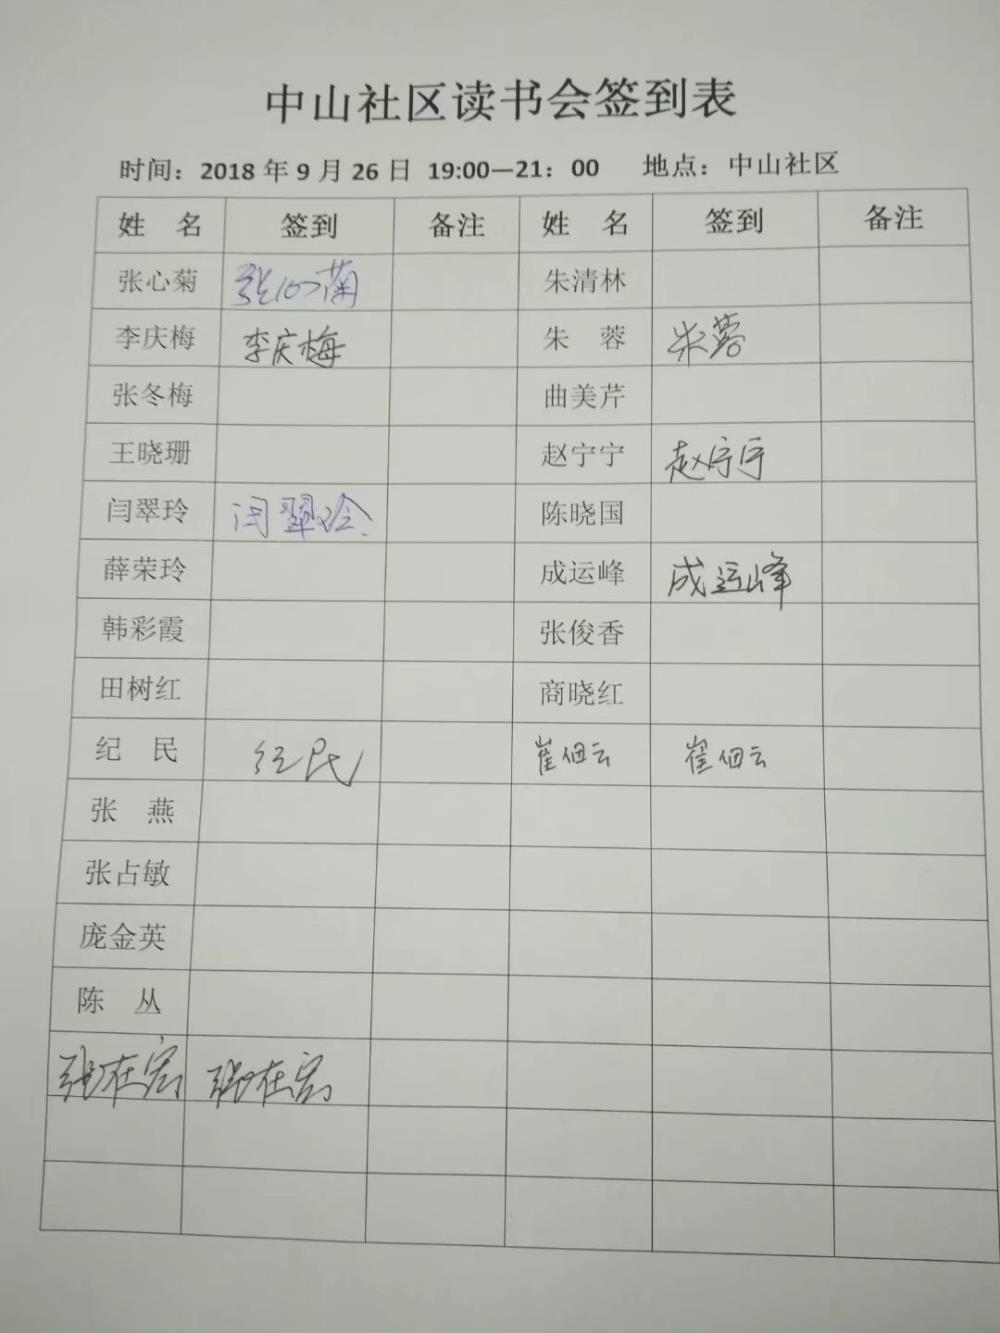 中山社区读书会签到表
时间：2018 年 9 月 26 日 19:00—21：00 地点：中山社区
姓 名 签到 备注 姓 名 签到 备注
张心菊 张心菊 朱清林
李庆梅 李庆梅 朱 蓉 朱蓉
张冬梅 曲美芹
王晓珊 赵宁宁 赵宁宁
闫翠玲 闫翠玲 陈晓国
薛荣玲 成运峰 成运峰
韩彩霞 张俊香
田树红 商晓红
纪 民 纪民 崔佃云 崔佃云
张 燕
张占敏
庞金英
陈 丛
张在宏 张在宏